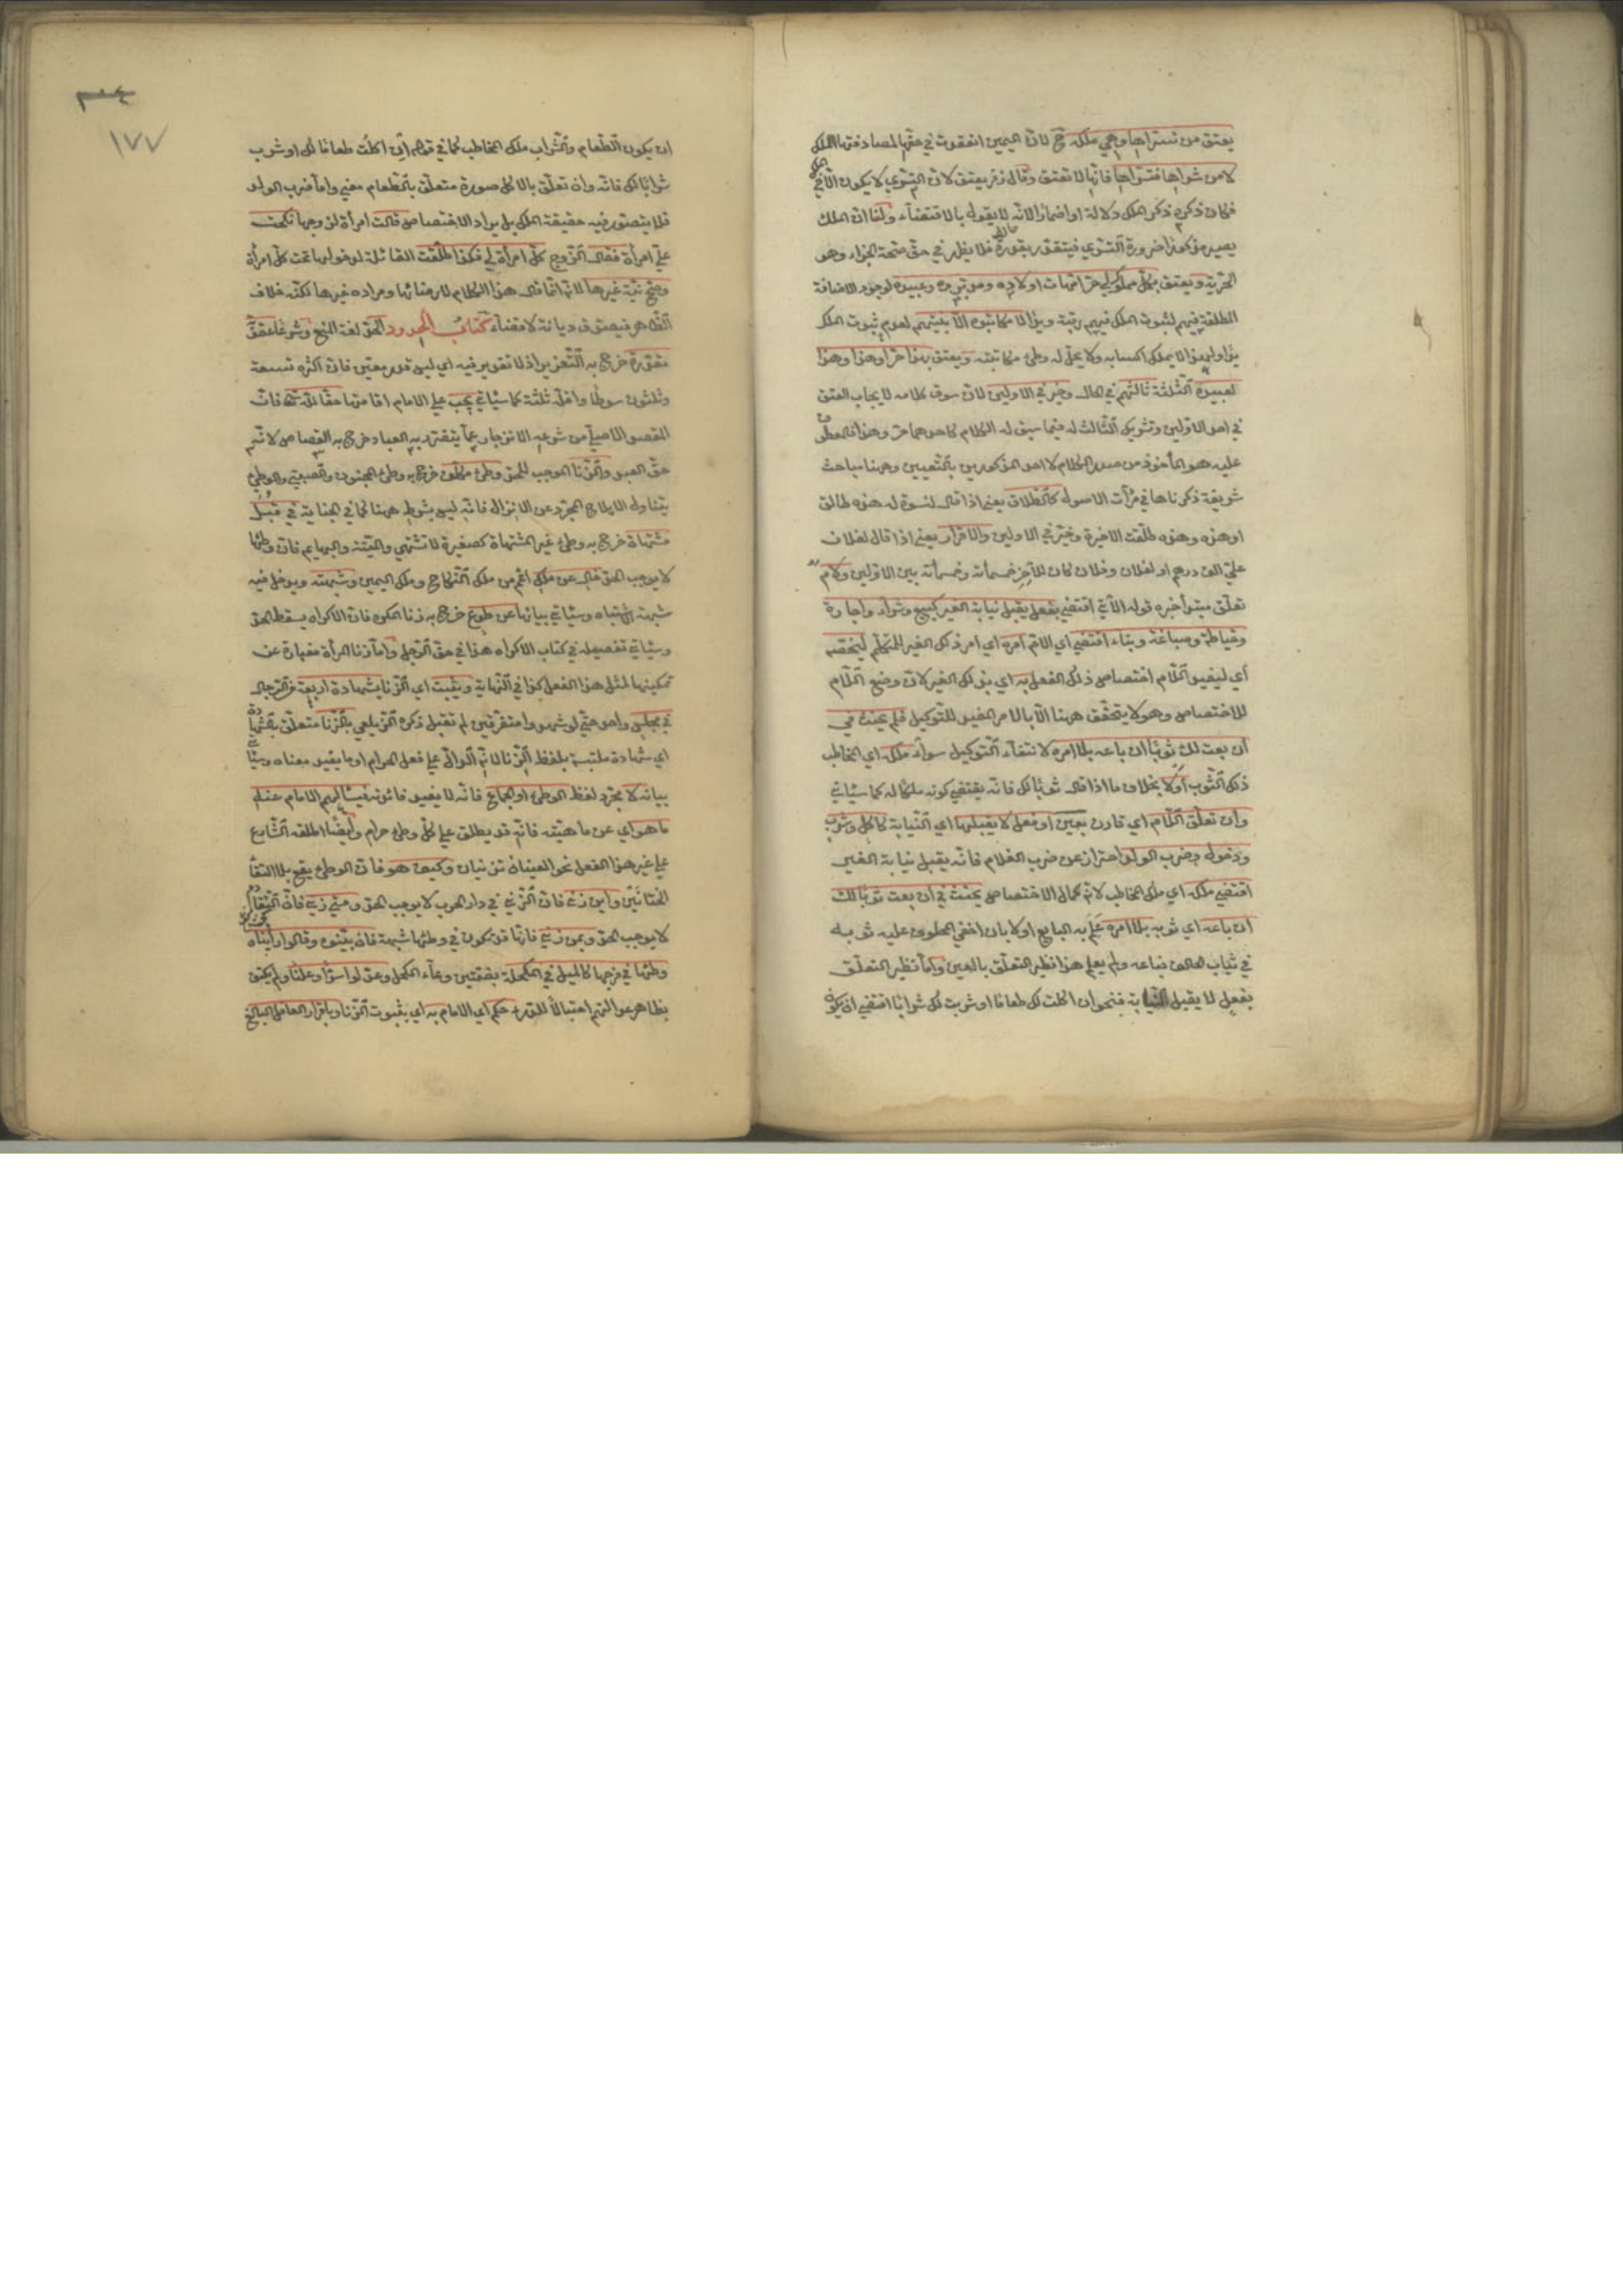 يعتق من تسراها وهي ملكه ح لان اليمين انعقدت في حقها لمصادفتها الملك
لا من شراها فتسراها فانها لا تعتق وقال زفر يعتق لان التسري لا يكون الا في الملك
فكان ذكره ذكر الملك دلالة او اضمارا لانه لا يقول بالاقتضاء ولنا ان الملك
يصير مذكورا ضرورة التسري فيتقدر بقدره فلا يظهر في حق صحة الجزاء وهو
الحرية ويعتق بكل مملوك لي حر امهات اولاده ومدبروه وعبيده لوجود الاضافة
المطلقة فيهم لثبوت الملك فيهم رقبة ويدا لا مكاتبوه الا بنيتهم لعدم ثبوت الملك
يدا ولهذا لا يملك اكسابه ولا يحل له وطئ مكاتبته ويعتق بهذا حر او هذا وهذا
لعبيده الثلثة ثالثهم في الحال وخير في الاولين لان سوق كلامه لايجاب العتق
في احد الاولين وتشريك الثالث له فيما سيق له الكلام كاحدهما حر وهذا فالمعطوف
عليه هو المأخوذ من صدر الكلام لا احد المذكورين بالتعيين وههنا مباحث
شريفة ذكرناها في مرآت الاصول كالطلاق يعني اذا قال لنسوة له هذه طالق
او هذه وهذه طلقت الاخيرة وخير في الاوليين والاقرار يعني اذا قال لفلان
علي الف درهم او لفلان وفلان كان للآخر خمسمأته وخمسمأته بين الاولين ولام
تعلق مبتدأ خبره قوله الآتي اقتضي بفعل يقبل نيابة الغير كبيع وشراء واجارة
وخياطة وصباغة وبناء اقتضي اي اللام امره اي امر ذلك الغير المتكلم ليخصه
اي ليفيد اللام اختصاص ذلك الفعل به اي بذلك الغير لان وضع اللام
للاختصاص وهو لا يتحقق ههنا الا بالامر المفيد للتوكيل فلم يحنث في
ان بعت لك ثوبا ان باعه بلا امره لانتفاء التوكيل سواء ملكه اي المخاطب
ذلك الثوب او لا بخلاف ما اذا قال ثوبا لك فانه يقتضي كونه ملكا له كما سيأتي
وان تعلق اللام اي قارن بعين او فعل لا يقبلها اي النيابة كاكل وشرب
ودخول وضرب الولد احتراز عن ضرب الغلام فانه يقبل نيابة الغير
اقتضي ملكه اي ملك المخاطب لانه كمال الاختصاص يحنث في ان بعت ثوبا لك
ان باعه اي ثوبه بلا امره علم به البايع او لا بان اخفي المحلوف عليه ثوبه
في ثياب الحالف فباعه ولم يعلم هذا نظير التعلق بالعين واما نظير التعلق
بفعل لا يقبل النيابة فنحو ان اكلت لك طعاما او شربت لك شرابا اقتضي ان يكون
١٧٧
ان يكون الطعام والشراب ملك المخاطب كما في قوله ان اكلت طعاما لك او شرب
شرابا لك فانه وان تعلق بالاكل صورة متعلق بالطعام معني واما ضرب الولد
فلا يتصور فيه حقيقة الملك بل يراد الاختصاص قالت امرأة لزوجها نكحت
علي امرأة فقال الزوج كل امرأة لي فكذا طلقت القائلة لدخولها تحت كل امرأة
وصح نية غيرها لانه انما قال هذا الكلام لارضائها ومراده غيرها لكنه خلاف
الظاهر فيصدق ديانة لا قضاء كتاب الحدود الحد لغة المنع وشرعا عقوبة
مقدرة خرج به التعزير اذ لا تقدير فيه اي ليس قدر معين فان اكثره تسعة
وثلثون سوطا واقله ثلثة كما سيأتي يجب علي الامام اقامتها حقا لله تعالى فان
المقصد الاصلي من شرعه الانزجار عما يتضرر به العباد خرج به القصاص لانه
حق العبد والزنا الموجب للحد وطئ مكلف خرج به وطئ المجنون والصبي والوطئ
يتناول الايلاج المجرد عن الانزال فانه ليس بشرط ههنا كما في الجناية في قبل
مشتهاة خرج به وطئ غير المشتهاة كصغيرة لا تشتهي والميتة والبهايم فان وطئها
لا يوجب الحد خال عن ملك اعم من ملك النكاح وملك اليمين وشبهته ويدخل فيه
شبهة الاشتباه وسيأتي بيانها عن طوع خرج به زنا المكره فان الاكراه يسقط الحد
وسيأتي تفصيله في كتاب الاكراه هذا في حق الرجل واما زنا المرأة فعبارة عن
تمكينها لمثل هذا الفعل كذا في النهاية ويثبت اي الزنا بشهادة اربعة من الرجال
في مجلس واحد حتي لو شهدوا متفرقين لم تقبل ذكره الزيلعي بالزنا متعلق بشهادة
اي شهادة ملتبسة بلفظ الزنا لانه الدال علي فعل الحرام او ما يفيد معناه وسيأتي
بيانه لا بمجرد لفظ الوطئ او الجماع فانه لا يفيد فائدته فيسألهم الامام عنه
ما هو اي عن ماهيته فانه قد يطلق علي كل وطئ حرام وايضا اطلقه الشارع
علي غير هذا الفعل نحو العينان تزنيان وكيف هو فان الوطئ يقع بلا التقاء
الختانين واين زني فان الزني في دار الحرب لا يوجب الحد ومتي زني فان المتقادم
لا يوجب الحد وبمن زني فانها قد يكون في وطئها شبهة فان بينوه وقالوا رأيناه
وطئها في فرجها كالميل في المكحلة بضمتين وعاء الكحل وعدلوا سرا وعلنا ولم يكتف
بظاهر عدالتهم احتيالا للدرء حكم اي الامام به اي بثبوت الزنا وباقرار العاقل البالغ